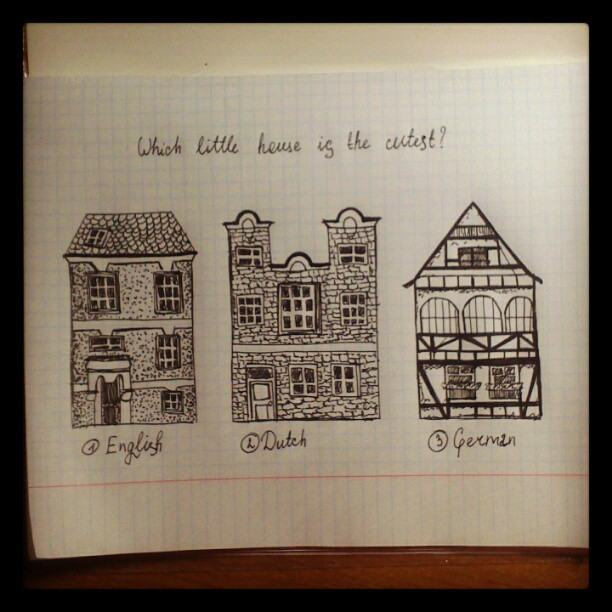 Which little house is the cutest?
1 English
2 Dutch
3 German